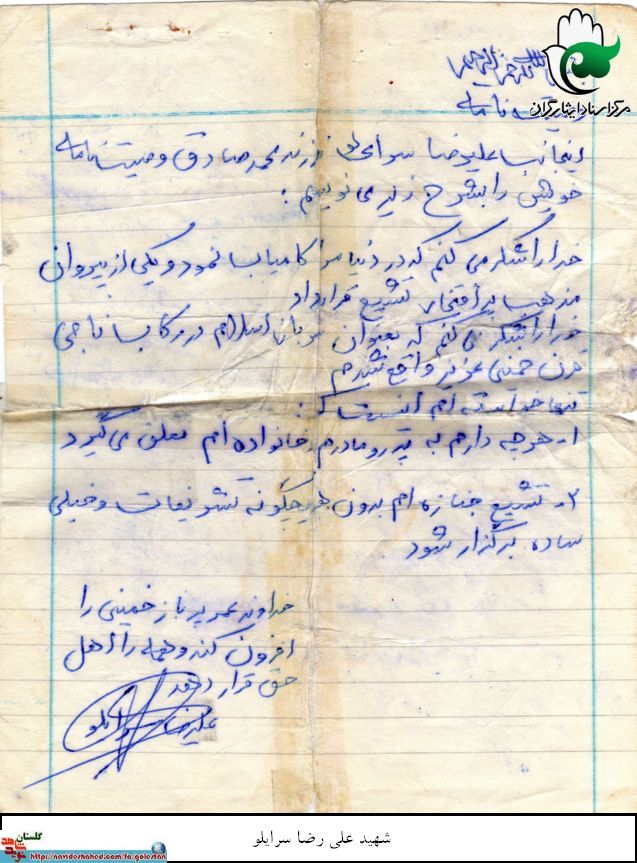 بسم الله الرحمن الرحیم
مرکز اسناد ایثارگران
وصیت نامه
اینجانب علیرضا سرایلو فرزند محمد صادق وصیت نامه
خویش را بشرح زیر می نویسم :
خدا را شکر می کنم که در دنیا مرا کامیاب نمود و یکی از پیروان
مذهب پر افتخار تشیع قرار داد
خدا را شکر می کنم که بعنوان سرباز اسلام در رکاب ناجی
قرن خمینی عزیز واقع شدم
تنها خواسته ام اینست که :
۱- هرچه دارم به پدر و مادرم و خانواده ام تعلق می گیرد
۲- تشییع جنازه ام بدون هیچگونه تشریفات و خیلی
ساده برگزار شود
خداوند عمر پر بار خمینی را
افزون کند و همه را اهل
حق قرار دهد
علیرضا سرایلو
شهید علی رضا سرایلو
گلستان
نوید شاهد
https://navideshahed.com/fa/golestan